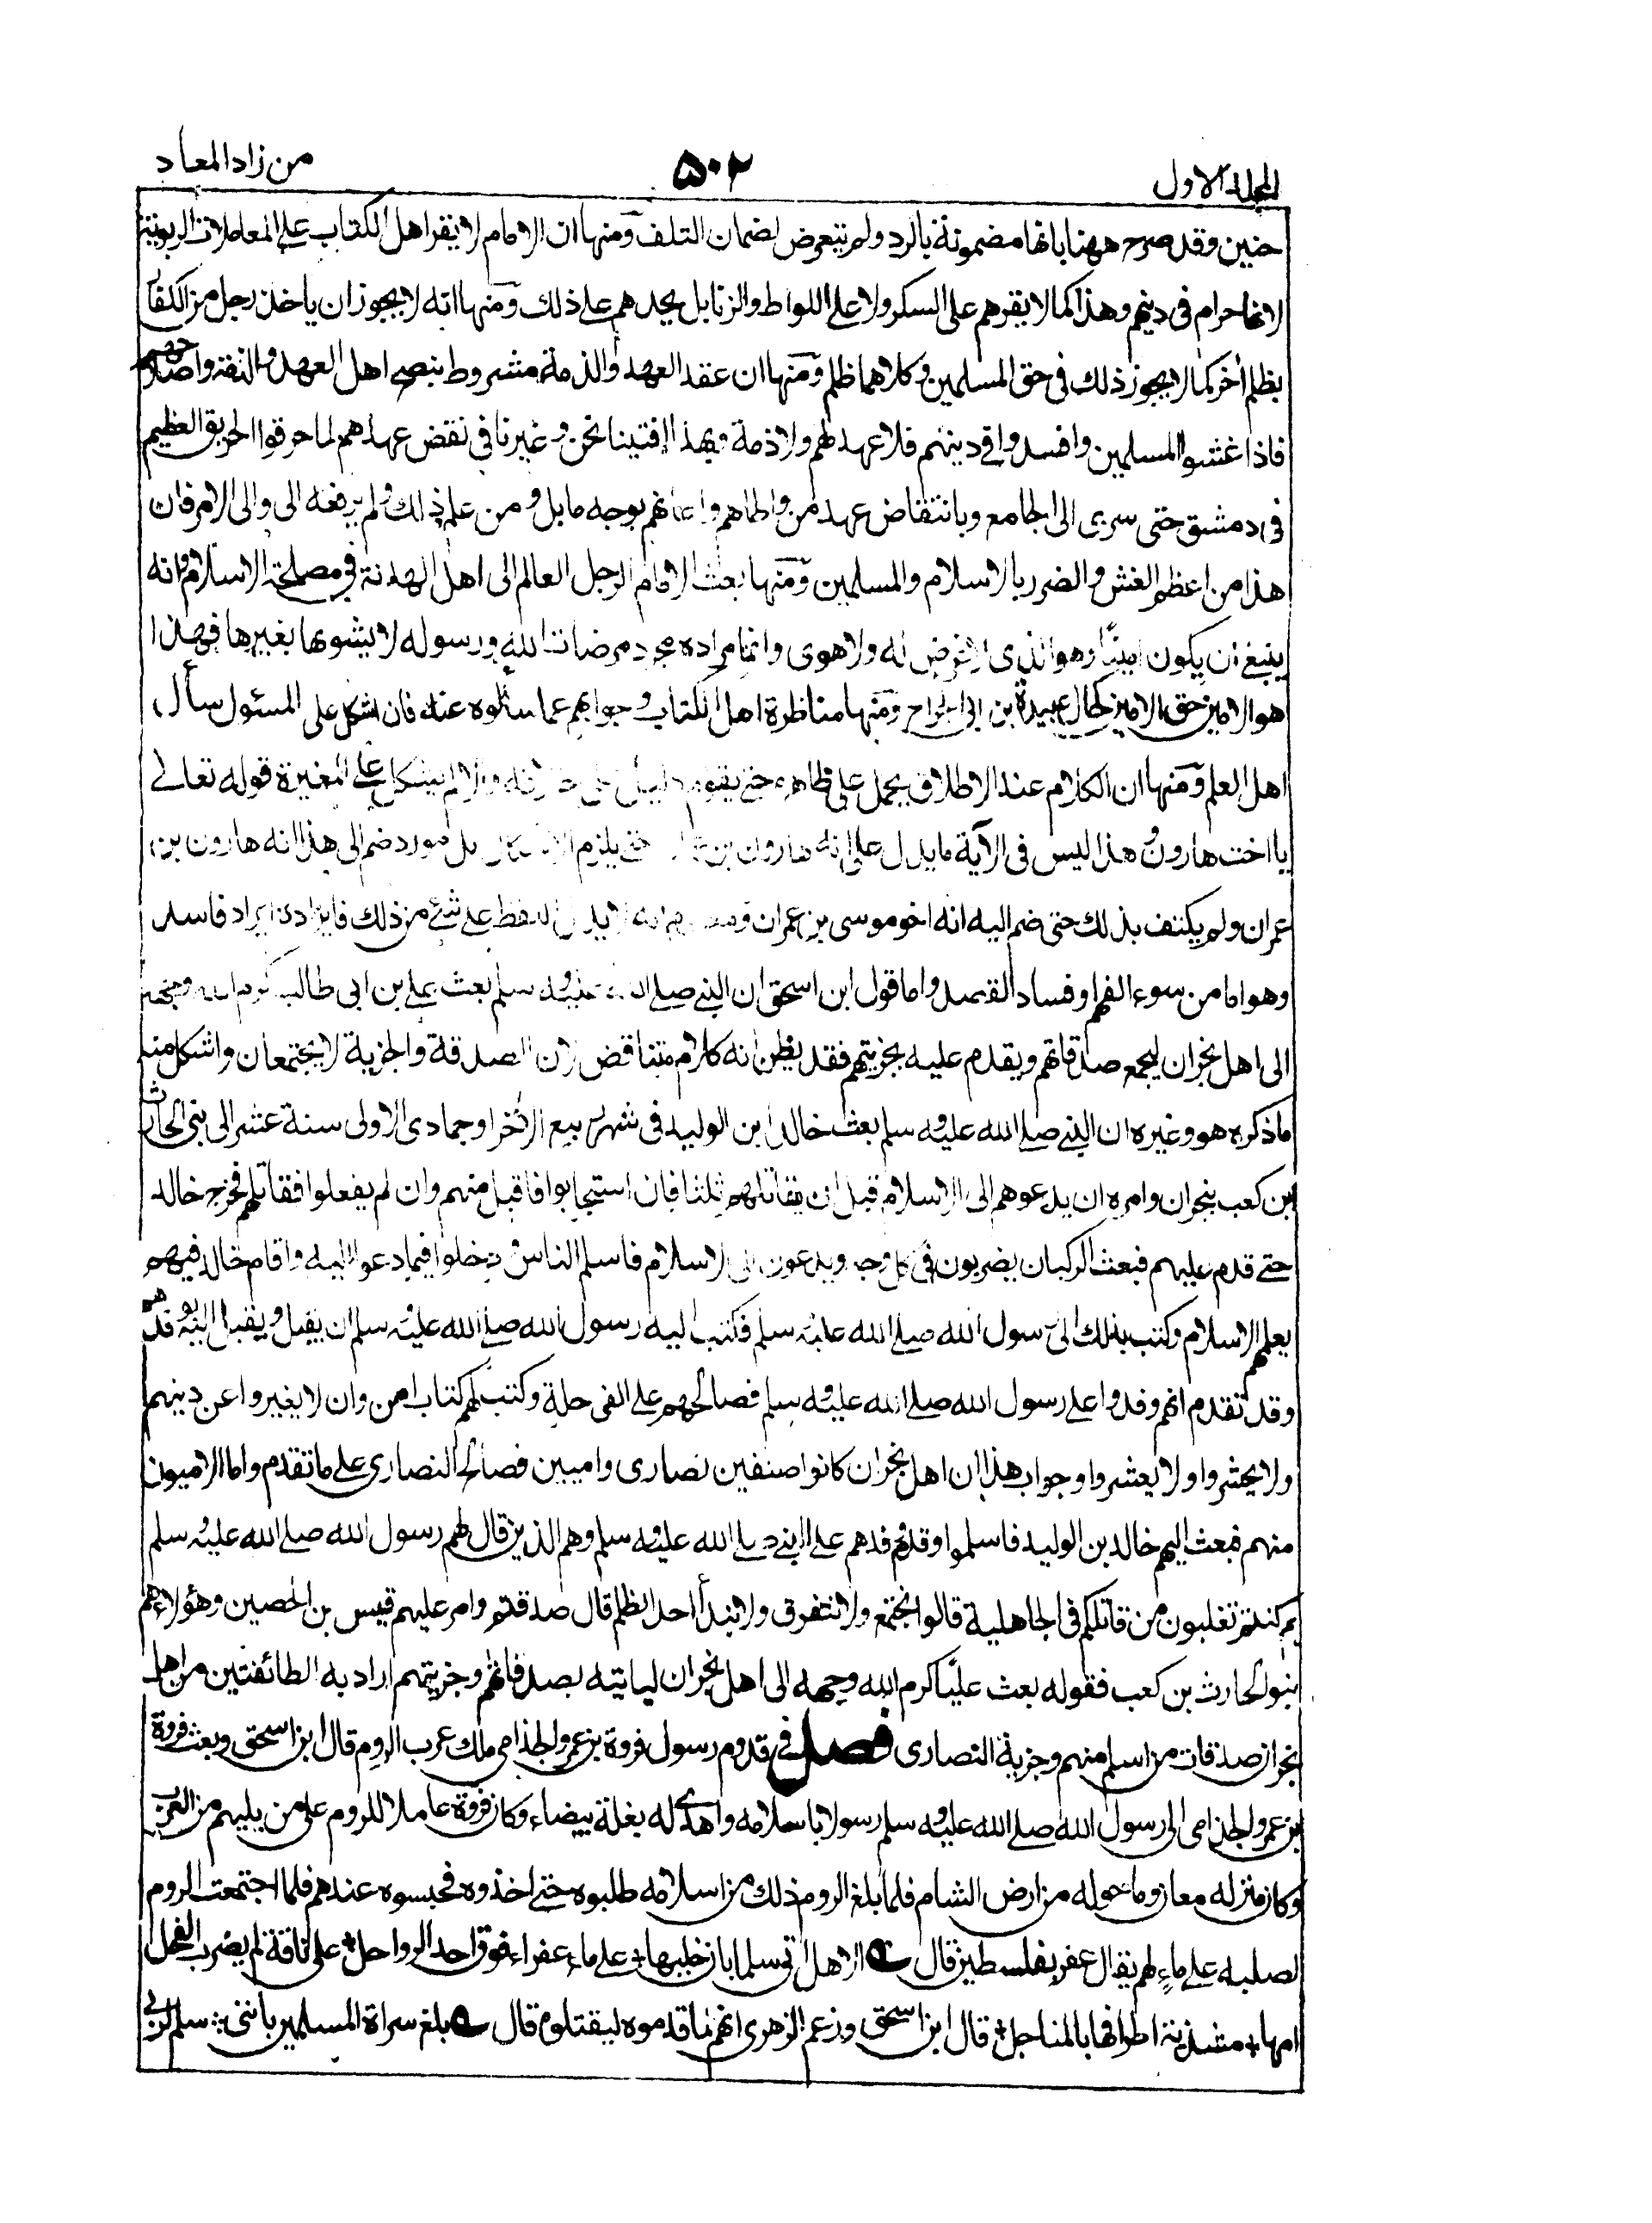 المجلد الاول
۵۰۲
من زاد المعاد
حنين وقد صرح ههنا بانها مضمونة بالرد ولم يتعرض لضمان التلف ومنها ان الامام لا يقر اهل الكتاب على المعاملات الربوية
لانها حرام فى دينهم وهذا كما لا يقرهم على السكر ولا على اللواط والزنا بل يحدهم على ذلك ومنها انه لا يجوز ان ياخذ رجل من الكفار
بظلم اخر كما لا يجوز ذلك فى حق المسلمين وكلاهما ظلم ومنها ان عقد العهد والذمة مشروط بنصح اهل العهد والذمة واصلاحهم
فاذا غشوا المسلمين وافسدوا فى دينهم فلا عهد لهم ولا ذمة وبهذا افتينا نحن وغيرنا فى نقض عهدهم لما حرقوا الحريق العظيم
فى دمشق حتى سرى الى الجامع وبانتقاض عهد من واطاهم واعانهم بوجه ما بل ومن علم ذلك ولم يرفعه الى والى الامر فان
هذا من اعظم الغش والضرر بالاسلام والمسلمين ومنها بعث الامام الرجل العالم الى اهل الهدنة فى مصلحة الاسلام وانه
ينبغى ان يكون امينا وهو الذى لا غرض له ولا هوى وانما مراده مجرد مرضات الله ورسوله لا يشوبها بغيرها فهذا
هو الامين حق الامين كحال عبيدة بن الجراح ومنها مناظرة اهل الكتاب وجوابهم عما سألوه عنه فان اشكل على المسئول سأل
اهل العلم ومنها ان الكلام عند الاطلاق يحمل على ظاهره حتى يقوم دليل على خلافه والا لم يشكل على المغيرة قوله تعالى
يا اخت هارون وهذا ليس فى الآية ما يدل على انه هارون بن حتى يلزم الاشكال بل مورد ضم الى هذا انه هارون بن
عمران ولم يكتف بذلك حتى ضم اليه انه اخو موسى بن عمران لا يدل اللفظ على شئ من ذلك فايراده ايراد فاسد
وهو اما من سوء الفهم او فساد القصد واما قول ابن اسحق ان النبى صلى الله عليه وسلم بعث على بن ابى طالب كرم الله وجهه
الى اهل نجران ليجمع صدقاتهم ويقدم عليه بجزيتهم فقد يظن انه كلام متناقض لان الصدقة والجزية لا يجتمعان واشكل منه
ما ذكره هو وغيره ان النبى صلى الله عليه وسلم بعث خالد ابن الوليد فى شهر ربيع الاخر او جمادى الاولى سنة عشر الى بنى الحارث
ابن كعب بنجران وامره ان يدعوهم الى الاسلام قبل ان يقاتلهم ثلثا فان استجابوا فاقبل منهم وان لم يفعلوا فقاتلهم فخرج خالد
حتى قدم عليهم فبعث الركبان يضربون فى كل وجه ويدعون الى الاسلام فاسلم الناس ودخلوا فيما دعوا اليه واقام خالد فيهم
يعلمهم الاسلام وكتب بذلك الى رسول الله صلى الله عليه وسلم فكتب اليه رسول الله صلى الله عليه وسلم ان يقبل ويقبل اليه بوفدهم
وقد تقدم انهم وفدوا على رسول الله صلى الله عليه وسلم فصالحهم على الفى حلة وكتب لهم كتاب امن وان لا يغيروا عن دينهم
ولا يحشروا ولا يعشروا وجواب هذا ان اهل نجران كانوا صنفين نصارى واميين فصالح النصارى على ما تقدم واما الاميون
منهم فبعث اليهم خالد بن الوليد فاسلموا وقدم وفدهم على النبى صلى الله عليه وسلم وهم الذين قال لهم رسول الله صلى الله عليه وسلم
بم كنتم تغلبون من قاتلكم فى الجاهلية قالوا نجتمع ولا نتفرق ولا نبدأ احدا بظلم قال صدقتم وامر عليهم قيس بن الحصين وهؤلاء هم
بنو الحارث بن كعب فقوله بعث عليا كرم الله وجهه الى اهل نجران لياتيه بصدقاتهم وجزيتهم اراد به الطائفتين من اهل
نجران صدقات من اسلم منهم وجزية النصارى فصل فى قدوم رسول فروة بن عمرو الجذامى ملك عرب الروم قال ابن اسحق وبعث فروة
بن عمرو الجذامى الى رسول الله صلى الله عليه وسلم رسولا باسلامه واهدى له بغلة بيضاء وكان فروة عاملا للروم على من يليهم من العرب
وكان منزله معان وما حوله من ارض الشام فلما بلغ الروم ذلك من اسلامه طلبوه حتى اخذوه فحبسوه عندهم فلما اجتمعت الروم
لصلبه على ماء لهم يقال عفر بفلسطين قال الا هل اتى سلما بان خليلها + على ماء عفراء فوق احد الرواحل + على ناقة لم يضرب الفحل
امها + مشذبة اطرافها بالمناجل + قال ابن اسحق وزعم الزهرى انهم لما قدموه ليقتلوه قال بلغ سراة المسلمين باننى : سلم لربى